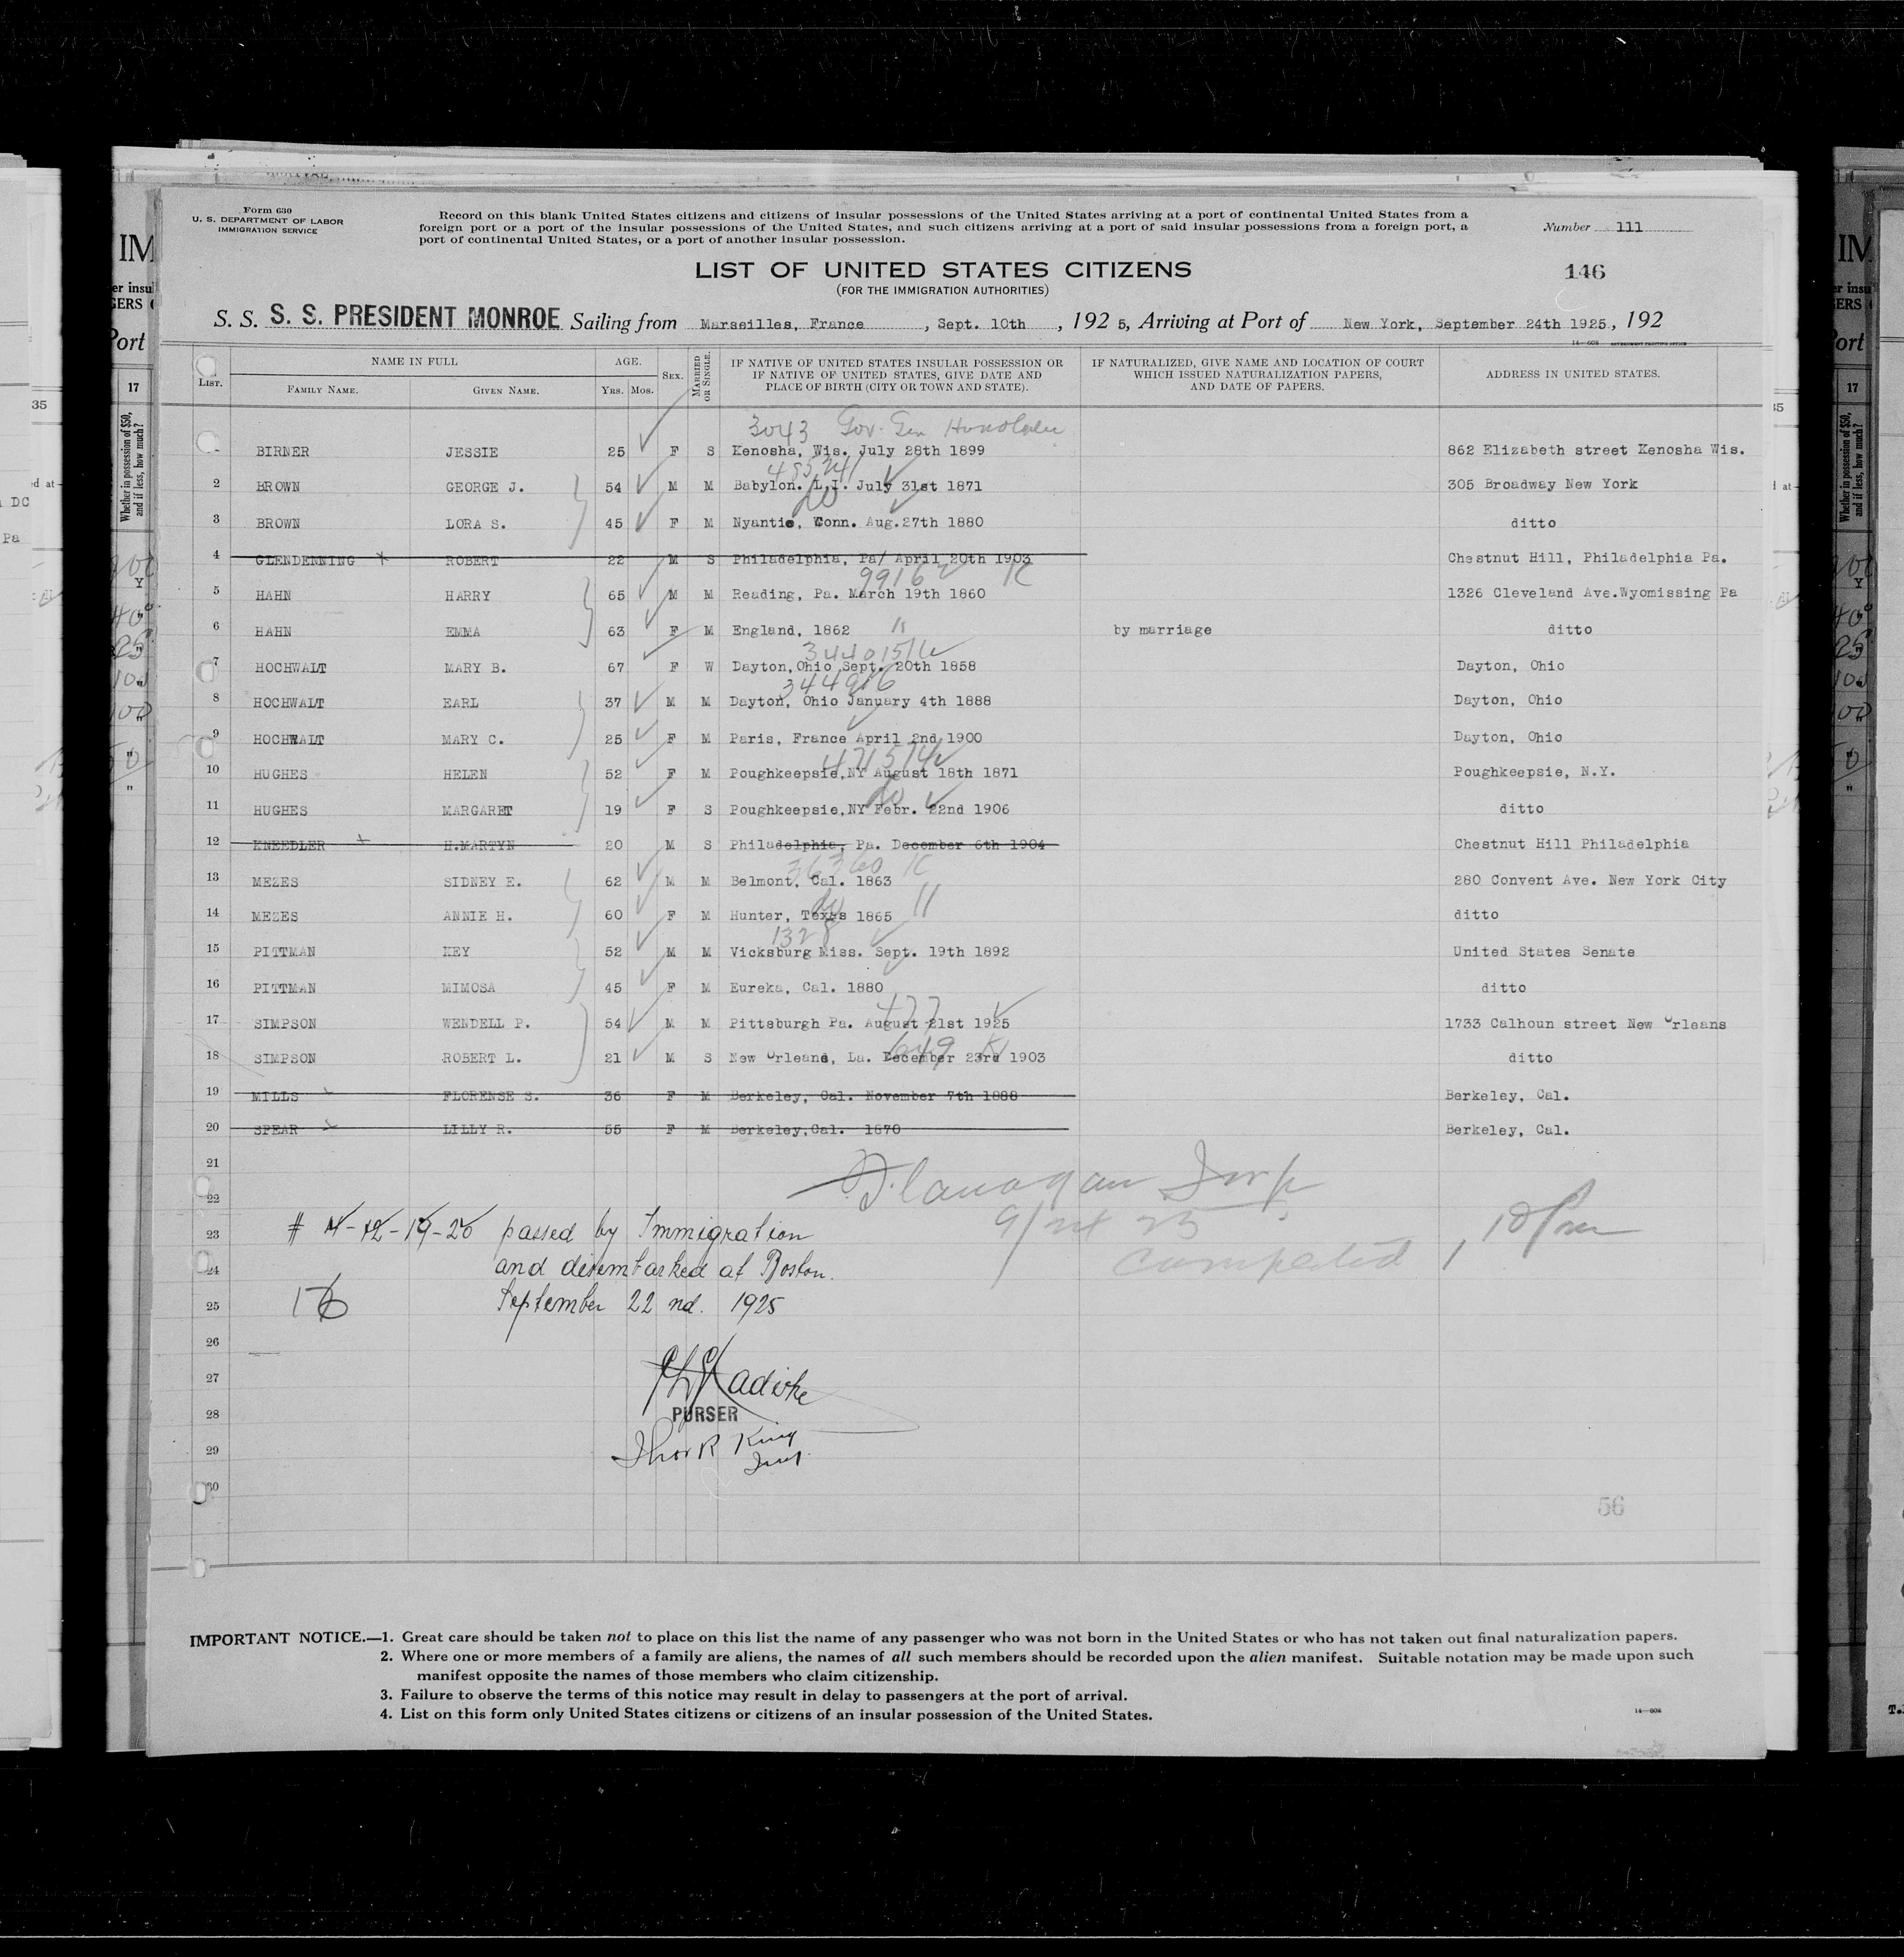 Form 630
U. S. DEPARTMENT OF LABOR
IMMIGRATION SERVICE
Record on this blank United States citizens and citizens of insular possessions of the United States arriving at a port of continental United States from a
foreign port or a port of the insular possessions of the United States, and such citizens arriving at a port of said insular possessions from a foreign port, a
port of continental United States, or a port of another insular possession.
Number 111
LIST OF UNITED STATES CITIZENS
146
(FOR THE IMMIGRATION AUTHORITIES)
S. S. S. S. PRESIDENT MONROE Sailing from Marseilles, France, Sept. 10th, 192 5, Arriving at Port of New York, September 24th 1925, 192
LIST. NAME IN FULL AGE. SEX. MARRIED OR SINGLE. IF NATIVE OF UNITED STATES INSULAR POSSESSION OR IF NATIVE OF UNITED STATES, GIVE DATE AND PLACE OF BIRTH (CITY OR TOWN AND STATE). IF NATURALIZED, GIVE NAME AND LOCATION OF COURT WHICH ISSUED NATURALIZATION PAPERS, AND DATE OF PAPERS. ADDRESS IN UNITED STATES.
FAMILY NAME. GIVEN NAME. YRS. MOS.
3043 Gov. Gen Honolulu
BIRNER JESSIE 25 F S Kenosha, Wis. July 28th 1899 862 Elizabeth street Kenosha Wis.
2 BROWN GEORGE J. 54 M M Babylon. L.I. July 31st 1871 305 Broadway New York
do
3 BROWN LORA S. 45 F M Nyantic, Conn. Aug.27th 1880 ditto
4 GLENDENNING x ROBERT 22 M S Philadelphia, Pa/ April 20th 1903 Chestnut Hill, Philadelphia Pa.
9916
5 HAHN HARRY 65 M M Reading, Pa. March 19th 1860 1326 Cleveland Ave.Wyomissing Pa
6 HAHN EMMA 63 F M England, 1862 " by marriage ditto
7 HOCHWALT MARY B. 67 F W Dayton,Ohio Sept. 20th 1858 Dayton, Ohio
344916
8 HOCHWALT EARL 37 M M Dayton, Ohio January 4th 1888 Dayton, Ohio
9 HOCHWALT MARY C. 25 F M Paris, France April 2nd 1900 Dayton, Ohio
10 HUGHES HELEN 52 F M Poughkeepsie,NY August 18th 1871 Poughkeepsie, N.Y.
do
11 HUGHES MARGARET 19 F S Poughkeepsie,NY Febr. 22nd 1906 ditto
12 KNEEDLER x H.MARTYN 20 M S Philadelphia, Pa. December 6th 1904 Chestnut Hill Philadelphia
36360
13 MEZES SIDNEY E. 62 M M Belmont, Cal. 1863 280 Convent Ave. New York City
do "
14 MEZES ANNIE H. 60 F M Hunter, Texas 1865 ditto
1328
15 PITTMAN KEY 52 M M Vicksburg Miss. Sept. 19th 1892 United States Senate
16 PITTMAN MIMOSA 45 F M Eureka, Cal. 1880 ditto
477
17 SIMPSON WENDELL P. 54 M M Pittsburgh Pa. August 21st 1925 1733 Calhoun street New Orleans
649
18 SIMPSON ROBERT L. 21 M S New Orleans, La. December 23rd 1903 ditto
19 MILLS x FLORENSE S. 36 F M Berkeley, Cal. November 7th 1888 Berkeley, Cal.
20 SPEAR x LILLY R. 55 F M Berkeley,Cal. 1870 Berkeley, Cal.
21
Flanagan Insp
22
23 # 4-12-19-20 passed by Immigration
9/24 25
10 Pm
24 and disembarked at Boston.
completed
25 16 September 22 nd. 1925
26
27
28 PURSER
29 Thos R King
Insp
30
56
IMPORTANT NOTICE.—1. Great care should be taken not to place on this list the name of any passenger who was not born in the United States or who has not taken out final naturalization papers.
2. Where one or more members of a family are aliens, the names of all such members should be recorded upon the alien manifest. Suitable notation may be made upon such
manifest opposite the names of those members who claim citizenship.
3. Failure to observe the terms of this notice may result in delay to passengers at the port of arrival.
4. List on this form only United States citizens or citizens of an insular possession of the United States.